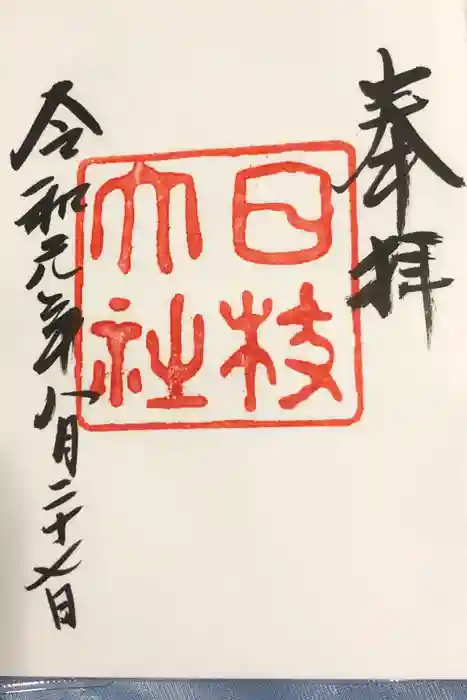 奉拝
日枝
大社
令和元年八月二十七日